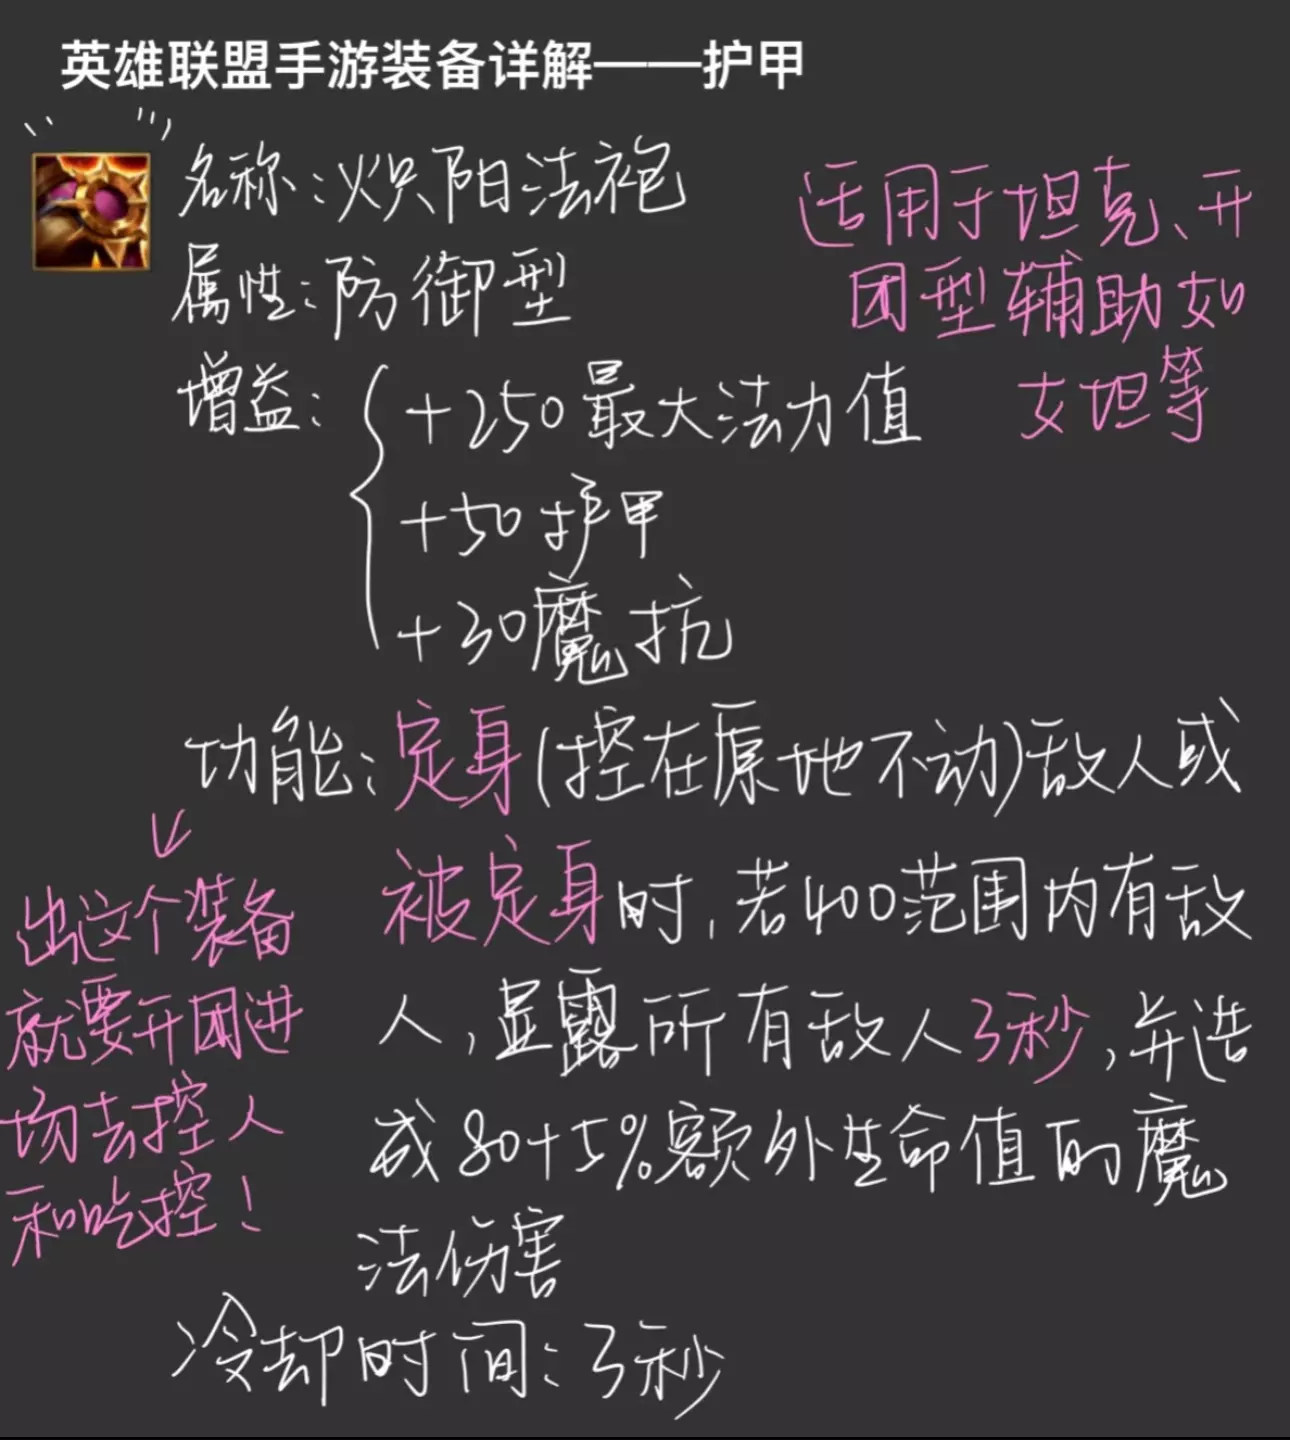 英雄联盟手游装备详解——护甲
名称:炽阳法袍
属性:防御型
增益:
+250最大法力值
+50护甲
+30魔抗
适用于坦克、开
团型辅助如
女坦等
功能:定身(控在原地不动)敌人或
被定身时,若400范围内有敌
人,显露所有敌人3秒,并造
成80+5%额外生命值的魔
法伤害
出这个装备
就要开团进
场去控人
和吃控!
冷却时间:3秒